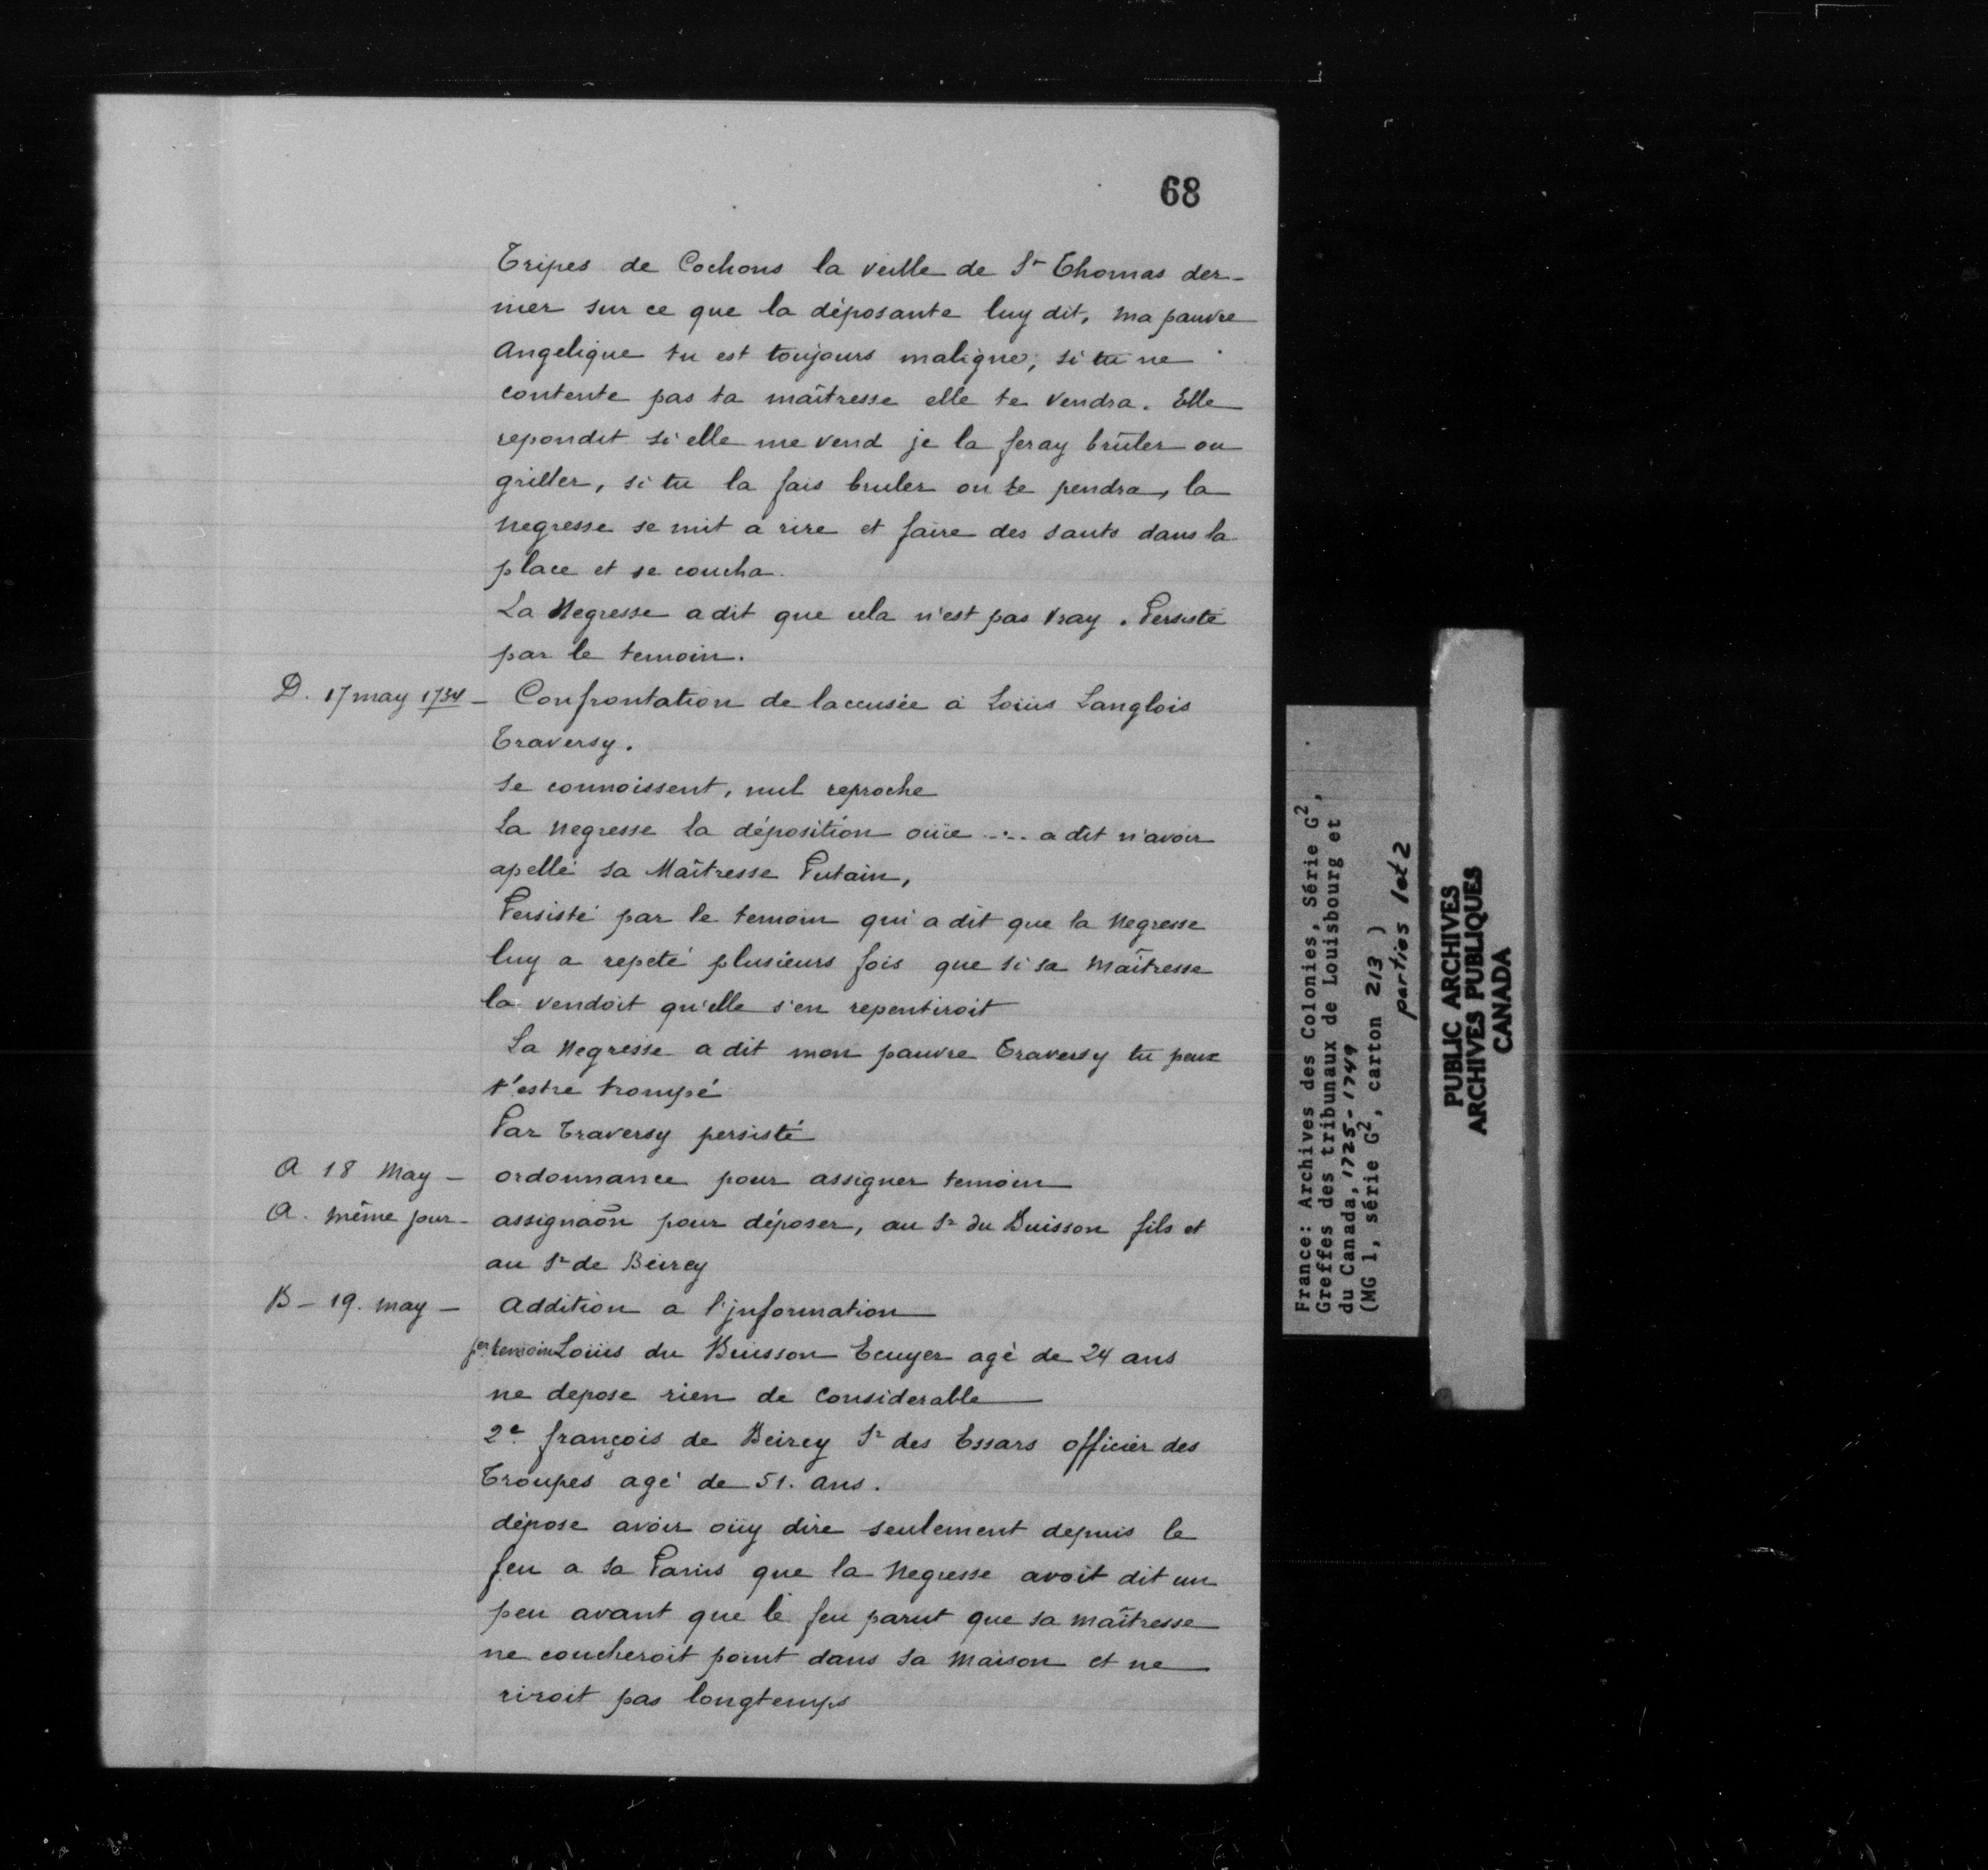 68
Tripes de Cochons la veille de St Thomas der-
nier sur ce que la déposante luy dit, ma pauvre
Angelique tu est toujours maligne, si tu ne
contente pas ta maîtresse elle te vendra. Elle
repondit si elle me vend je la feray brûler ou
griller, si tu la fais bruler on te pendra, la
Negresse se mit a rire et faire des sauts dans la
place et se coucha.
La Negresse a dit que cela n'est pas vray. Persisté
par le temoin.
D. 17 may 1734 - Confrontation de laccusée à Loüis Langlois
Traversy.
se connoissent, nul reproche
La negresse la déposition oüie ... a dit n'avoir
apellé sa Maîtresse Putain,
Persisté par le temoin qui a dit que la Negresse
luy a repeté plusieurs fois que si sa Maîtresse
la vendoit qu'elle s'en repentiroit
La Negresse a dit mon pauvre Traversy tu peux
t'estre trompé
Par Traversy persisté
A 18 May - ordonnance pour assigner temoin
A. même jour - assignaõn pour déposer, au Sr du Buisson fils et
au Sr de Beirey
B - 19. may - Addition a l'jnformation
1er temoin Loüis du Buisson Ecuyer agé de 24 ans
ne depose rien de Considerable
2e françois de Beirey Sr des Essars officier des
Troupes agé de 51. ans.
dépose avoir oüy dire seulement depuis le
feu a sa Panis que la Negresse avoit dit un
peu avant que le feu parut que sa maîtresse
ne coucheroit point dans sa Maison et ne
riroit pas longtemps
France: Archives des Colonies, Série G2,
Greffes des tribunaux de Louisbourg et
du Canada, 1725-1749
(MG 1, série G2, carton 213)
parties 1et2
PUBLIC ARCHIVES
ARCHIVES PUBLIQUES
CANADA